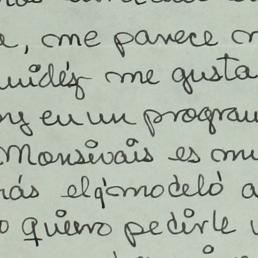 e, me parece m
uidéz me gusta
en un progra
Monsivais es mu
rás elq'modeló a
o quiero pedirle